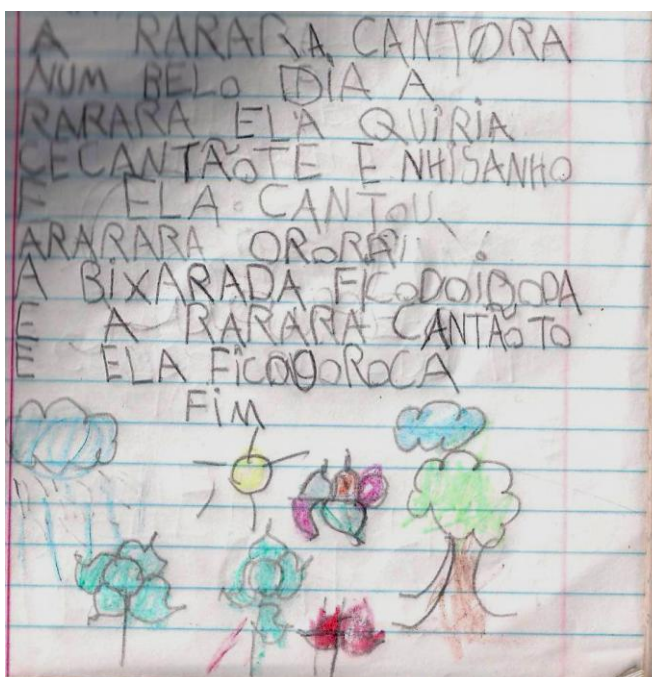 A RARARA CANTORA
NUM BELO DIA A
RARARA ELA QUIRIA
CECANTÃOTE E NHISANHO
E ELA CANTOU
ARARARA ORORAI
A BIXARADA FICODOIDODA
E A RARARA CANTÃOTO
E ELA FICODOROCA
FIM